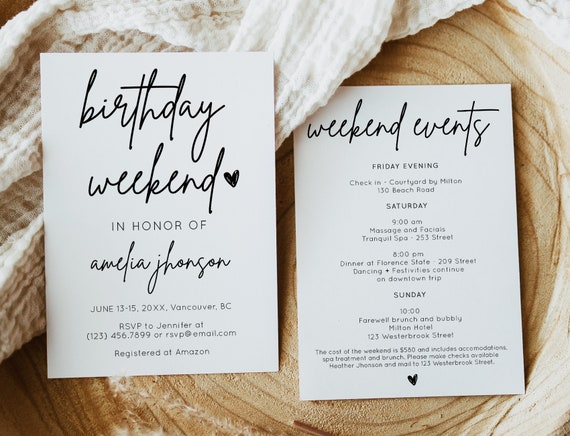 birthday
weekend
IN HONOR OF
amelia jhonson
JUNE 13-15, 20XX, Vancouver, BC
RSVP to Jennifer at
(123) 456.7899 or rsvp@email.com
Registered at Amazon
weekend events
FRIDAY EVENING
Check in - Courtyard by Milton
130 Beach Road
SATURDAY
9:00 am
Massage and Facials
Tranquil Spa - 253 Street
8:00 pm
Dinner at Florence State - 209 Street
Dancing + Festivities continue
on downtown trip
SUNDAY
10:00
Farewell brunch and bubbly
Milton Hotel
123 Westerbrook Street
The cost of the weekend is $580 and includes accomodations,
spa treatment and brunch. Please make checks available
Heather Jhonson and mail to 123 Westerbrook Street.